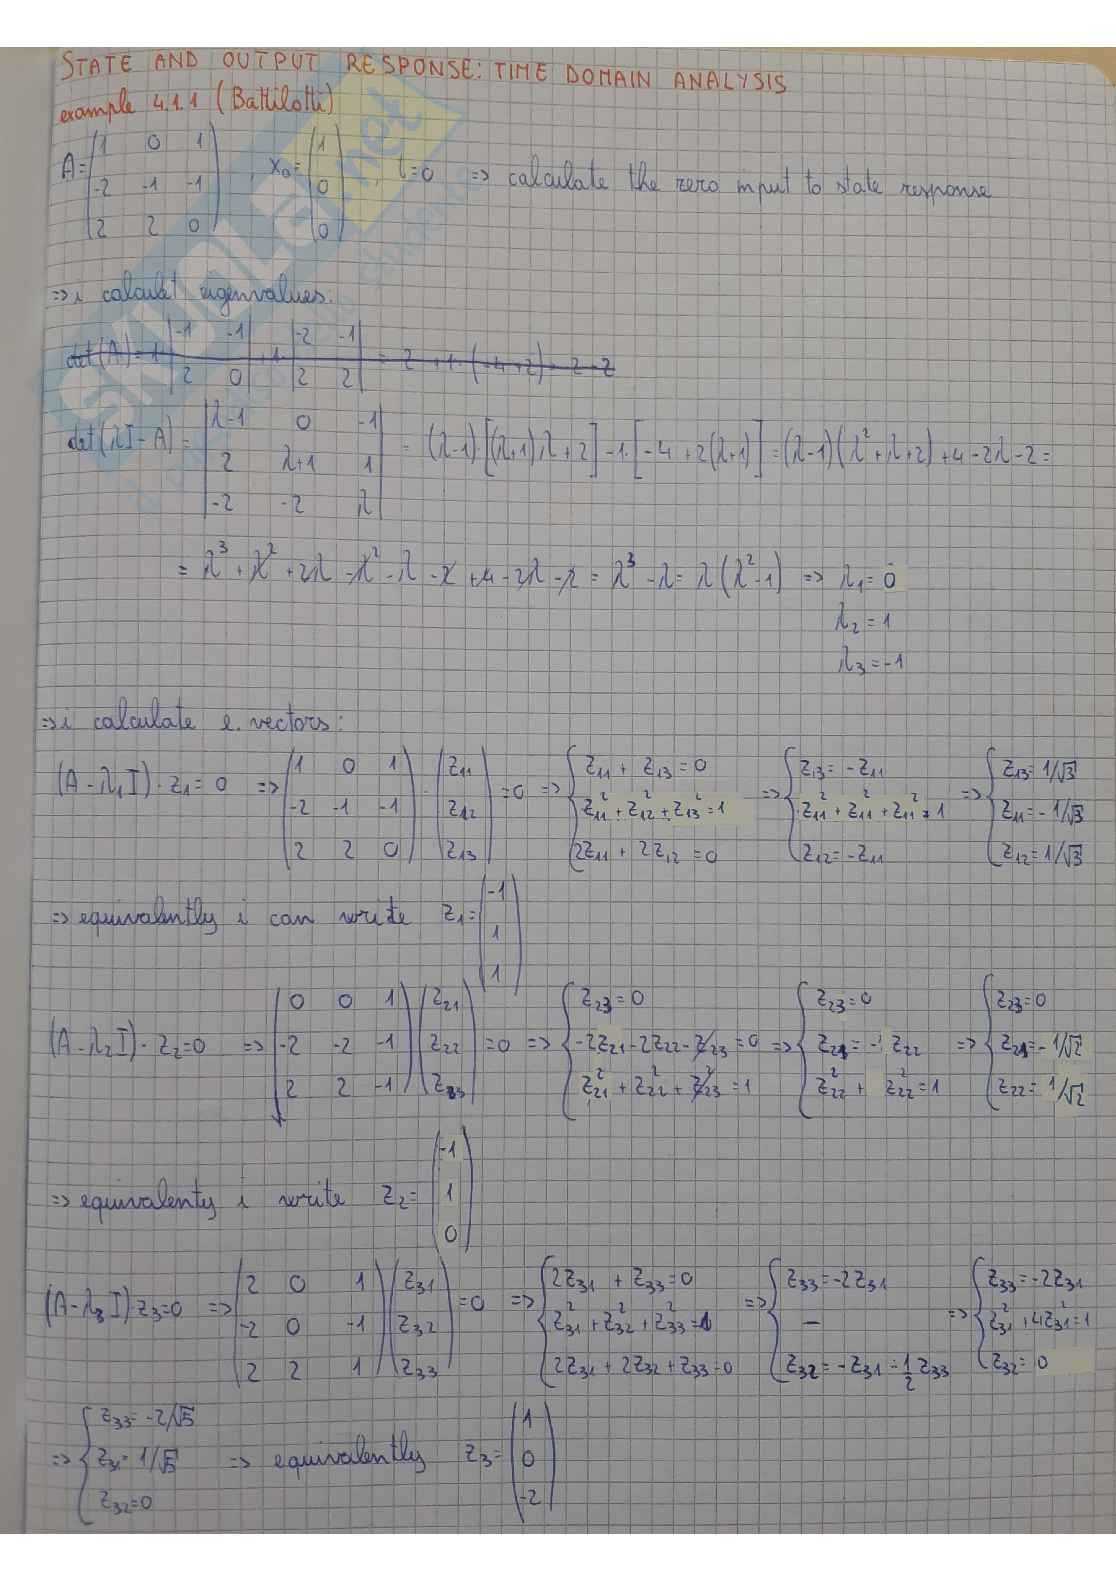 STATE AND OUTPUT RESPONSE: TIME DOMAIN ANALYSIS
example 4.1.1 (Battilotti)
A = (1 0 1; -2 -1 -1; 2 2 0), x₀ = (1; 0; 0), t=0 => calculate the zero input to state response
=> i calculat eigenvalues:
det(A) = 1·|-1 -1; 2 0| + 1·|-2 -1; 2 2| = 2 + 1·(-4+2) = 2-2
det(λI-A) = |λ-1 0 -1; 2 λ+1 1; -2 -2 λ| = (λ-1)·[(λ+1)λ+2] -1·[-4+2(λ+1)] = (λ-1)(λ²+λ+2)+4-2λ-2 =
= λ³+λ²+2λ-λ²-λ-2+4-2λ-2 = λ³-λ = λ(λ²-1) => λ₁=0
λ₂=1
λ₃=-1
=> i calculate e. vectors:
(A-λ₁I)·z₁=0 => (1 0 1; -2 -1 -1; 2 2 0)·(z₁₁; z₁₂; z₁₃)=0 => {z₁₁+z₁₃=0; z₁₁²+z₁₂²+z₁₃²=1; 2z₁₁+2z₁₂=0 => {z₁₃=-z₁₁; z₁₁²+z₁₁²+z₁₁²=1; z₁₂=-z₁₁ => {z₁₃=1/√3; z₁₁=-1/√3; z₁₂=1/√3
=> equivalently i can write z₁=(-1; 1; 1)
(A-λ₂I)·z₂=0 => (0 0 1; -2 -2 -1; 2 2 -1)(z₂₁; z₂₂; z₂₃)=0 => {z₂₃=0; -2z₂₁-2z₂₂-z₂₃=0; z₂₁²+z₂₂²+z₂₃²=1 => {z₂₃=0; z₂₁=-z₂₂; z₂₂²+z₂₂²=1 => {z₂₃=0; z₂₁=-1/√2; z₂₂=1/√2
=> equivalenty i write z₂=(-1; 1; 0)
(A-λ₃I)z₃=0 => (2 0 1; -2 0 -1; 2 2 1)(z₃₁; z₃₂; z₃₃)=0 => {2z₃₁+z₃₃=0; z₃₁²+z₃₂²+z₃₃²=1; 2z₃₁+2z₃₂+z₃₃=0 => {z₃₃=-2z₃₁; —; z₃₂=-z₃₁-1/2 z₃₃ => {z₃₃=-2z₃₁; z₃₁²+4z₃₁²=1; z₃₂=0
=> {z₃₃=-2/√5; z₃₁=1/√5; z₃₂=0 => equivalently z₃=(1; 0; -2)
SKUOLA.net